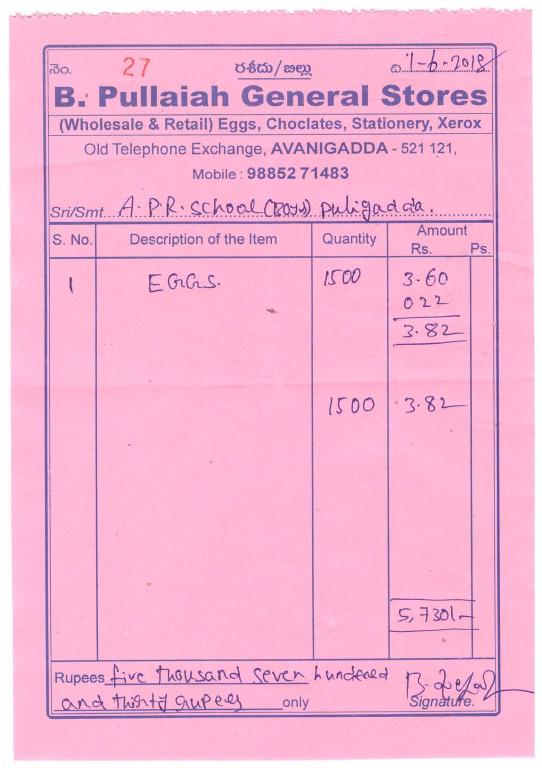 నెం. 27 రశీదు/బిల్లు ది 1-6-2018
B. Pullaiah General Stores
(Wholesale & Retail) Eggs, Choclates, Stationery, Xerox
Old Telephone Exchange, AVANIGADDA - 521 121,
Mobile : 98852 71483
Sri/Smt. A.P.R. School (Boys) Puligadda.
S. No. Description of the Item Quantity Amount
Rs. Ps.
1 EGGS. 1500 3.60
022
3.82
1500 3.82
5,730/-
Rupees five thousand seven hundered
and thirty rupees only
Signature.